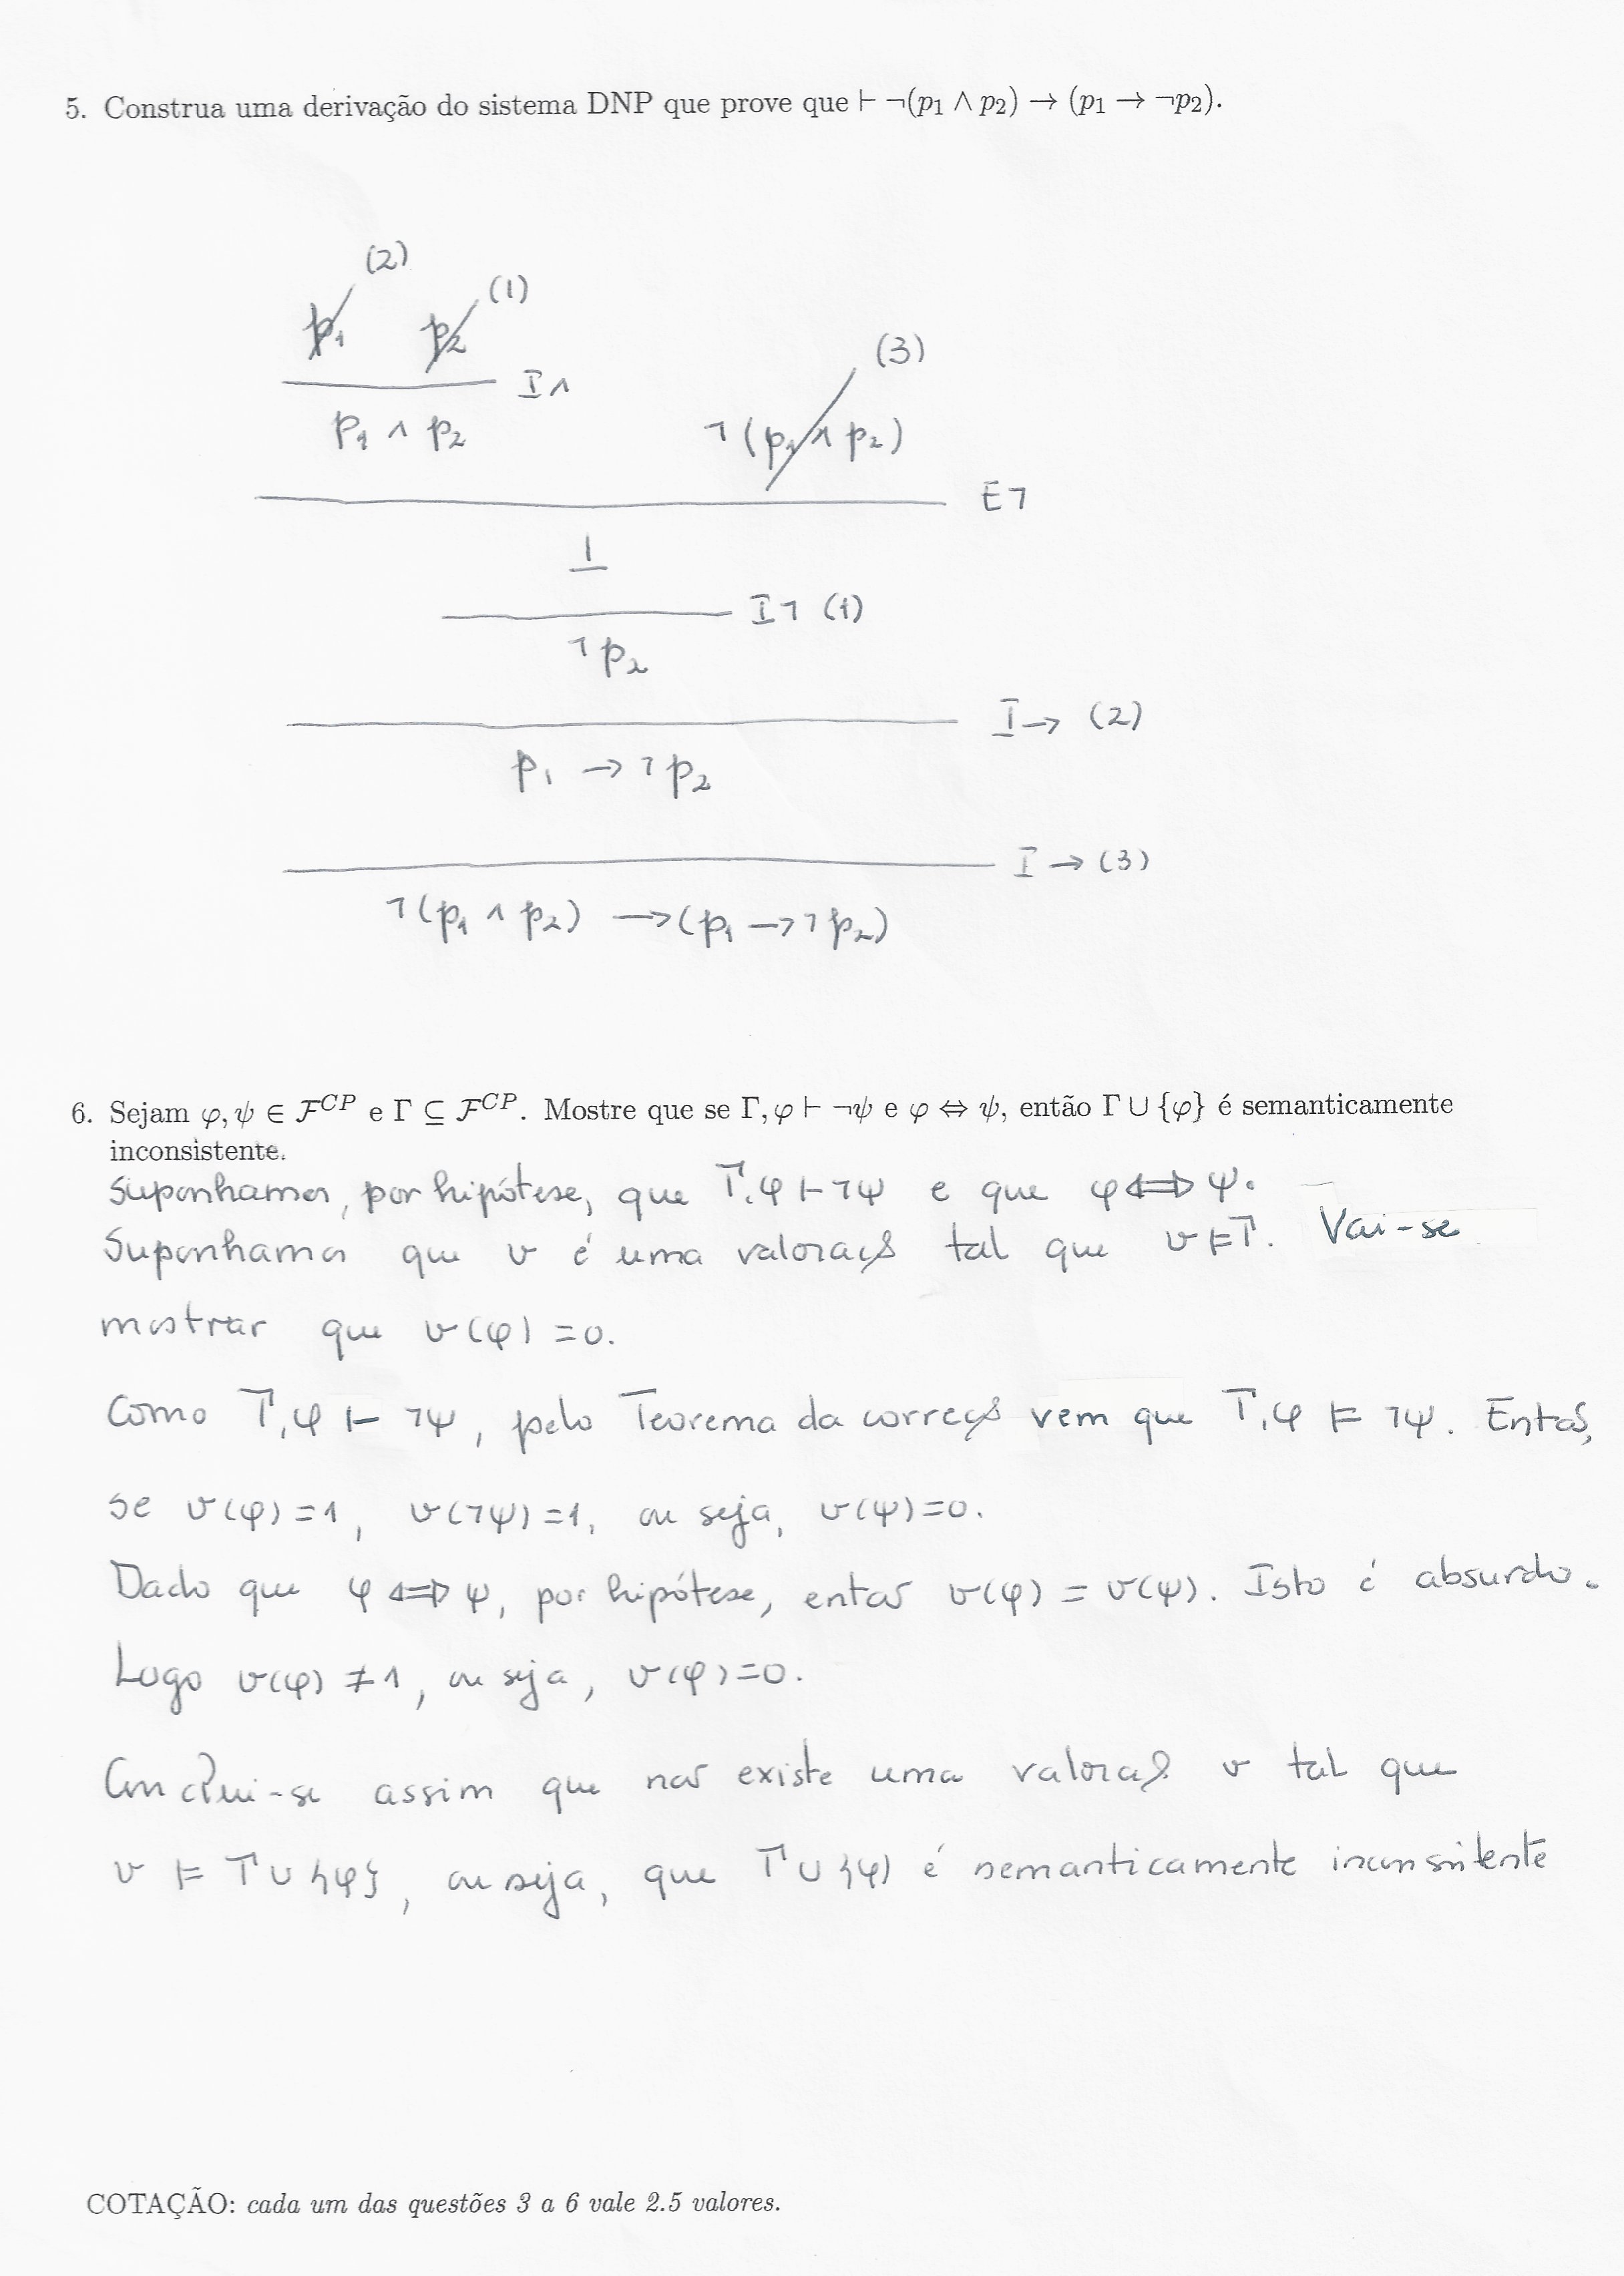 5. Construa uma derivação do sistema DNP que prove que ⊢ ¬(p₁ ∧ p₂) → (p₁ → ¬p₂).
(2)
(1)
p₁ p₂
(3)
I∧
p₁ ∧ p₂ ¬(p₁ ∧ p₂)
E¬
⊥
I¬ (1)
¬p₂
I→ (2)
p₁ → ¬p₂
I → (3)
¬(p₁ ∧ p₂) → (p₁ → ¬p₂)
6. Sejam φ, ψ ∈ 𝓕^CP e Γ ⊆ 𝓕^CP. Mostre que se Γ, φ ⊢ ¬ψ e φ ⇔ ψ, então Γ ∪ {φ} é semanticamente
inconsistente.
Suponhamos, por hipótese, que Γ, φ ⊢ ¬ψ e que φ ⇔ ψ.
Suponhamos que v é uma valoração tal que v ⊨ Γ. Vai-se
mostrar que v(φ) = 0.
Como Γ, φ ⊢ ¬ψ, pelo Teorema da correção vem que Γ, φ ⊨ ¬ψ. Então,
se v(φ) = 1, v(¬ψ) = 1, ou seja, v(ψ) = 0.
Dado que φ ⇔ ψ, por hipótese, então v(φ) = v(ψ). Isto é absurdo.
Logo v(φ) ≠ 1, ou seja, v(φ) = 0.
Conclui-se assim que não existe uma valoração v tal que
v ⊨ Γ ∪ {φ}, ou seja, que Γ ∪ {φ} é semanticamente inconsistente
COTAÇÃO: cada um das questões 3 a 6 vale 2.5 valores.